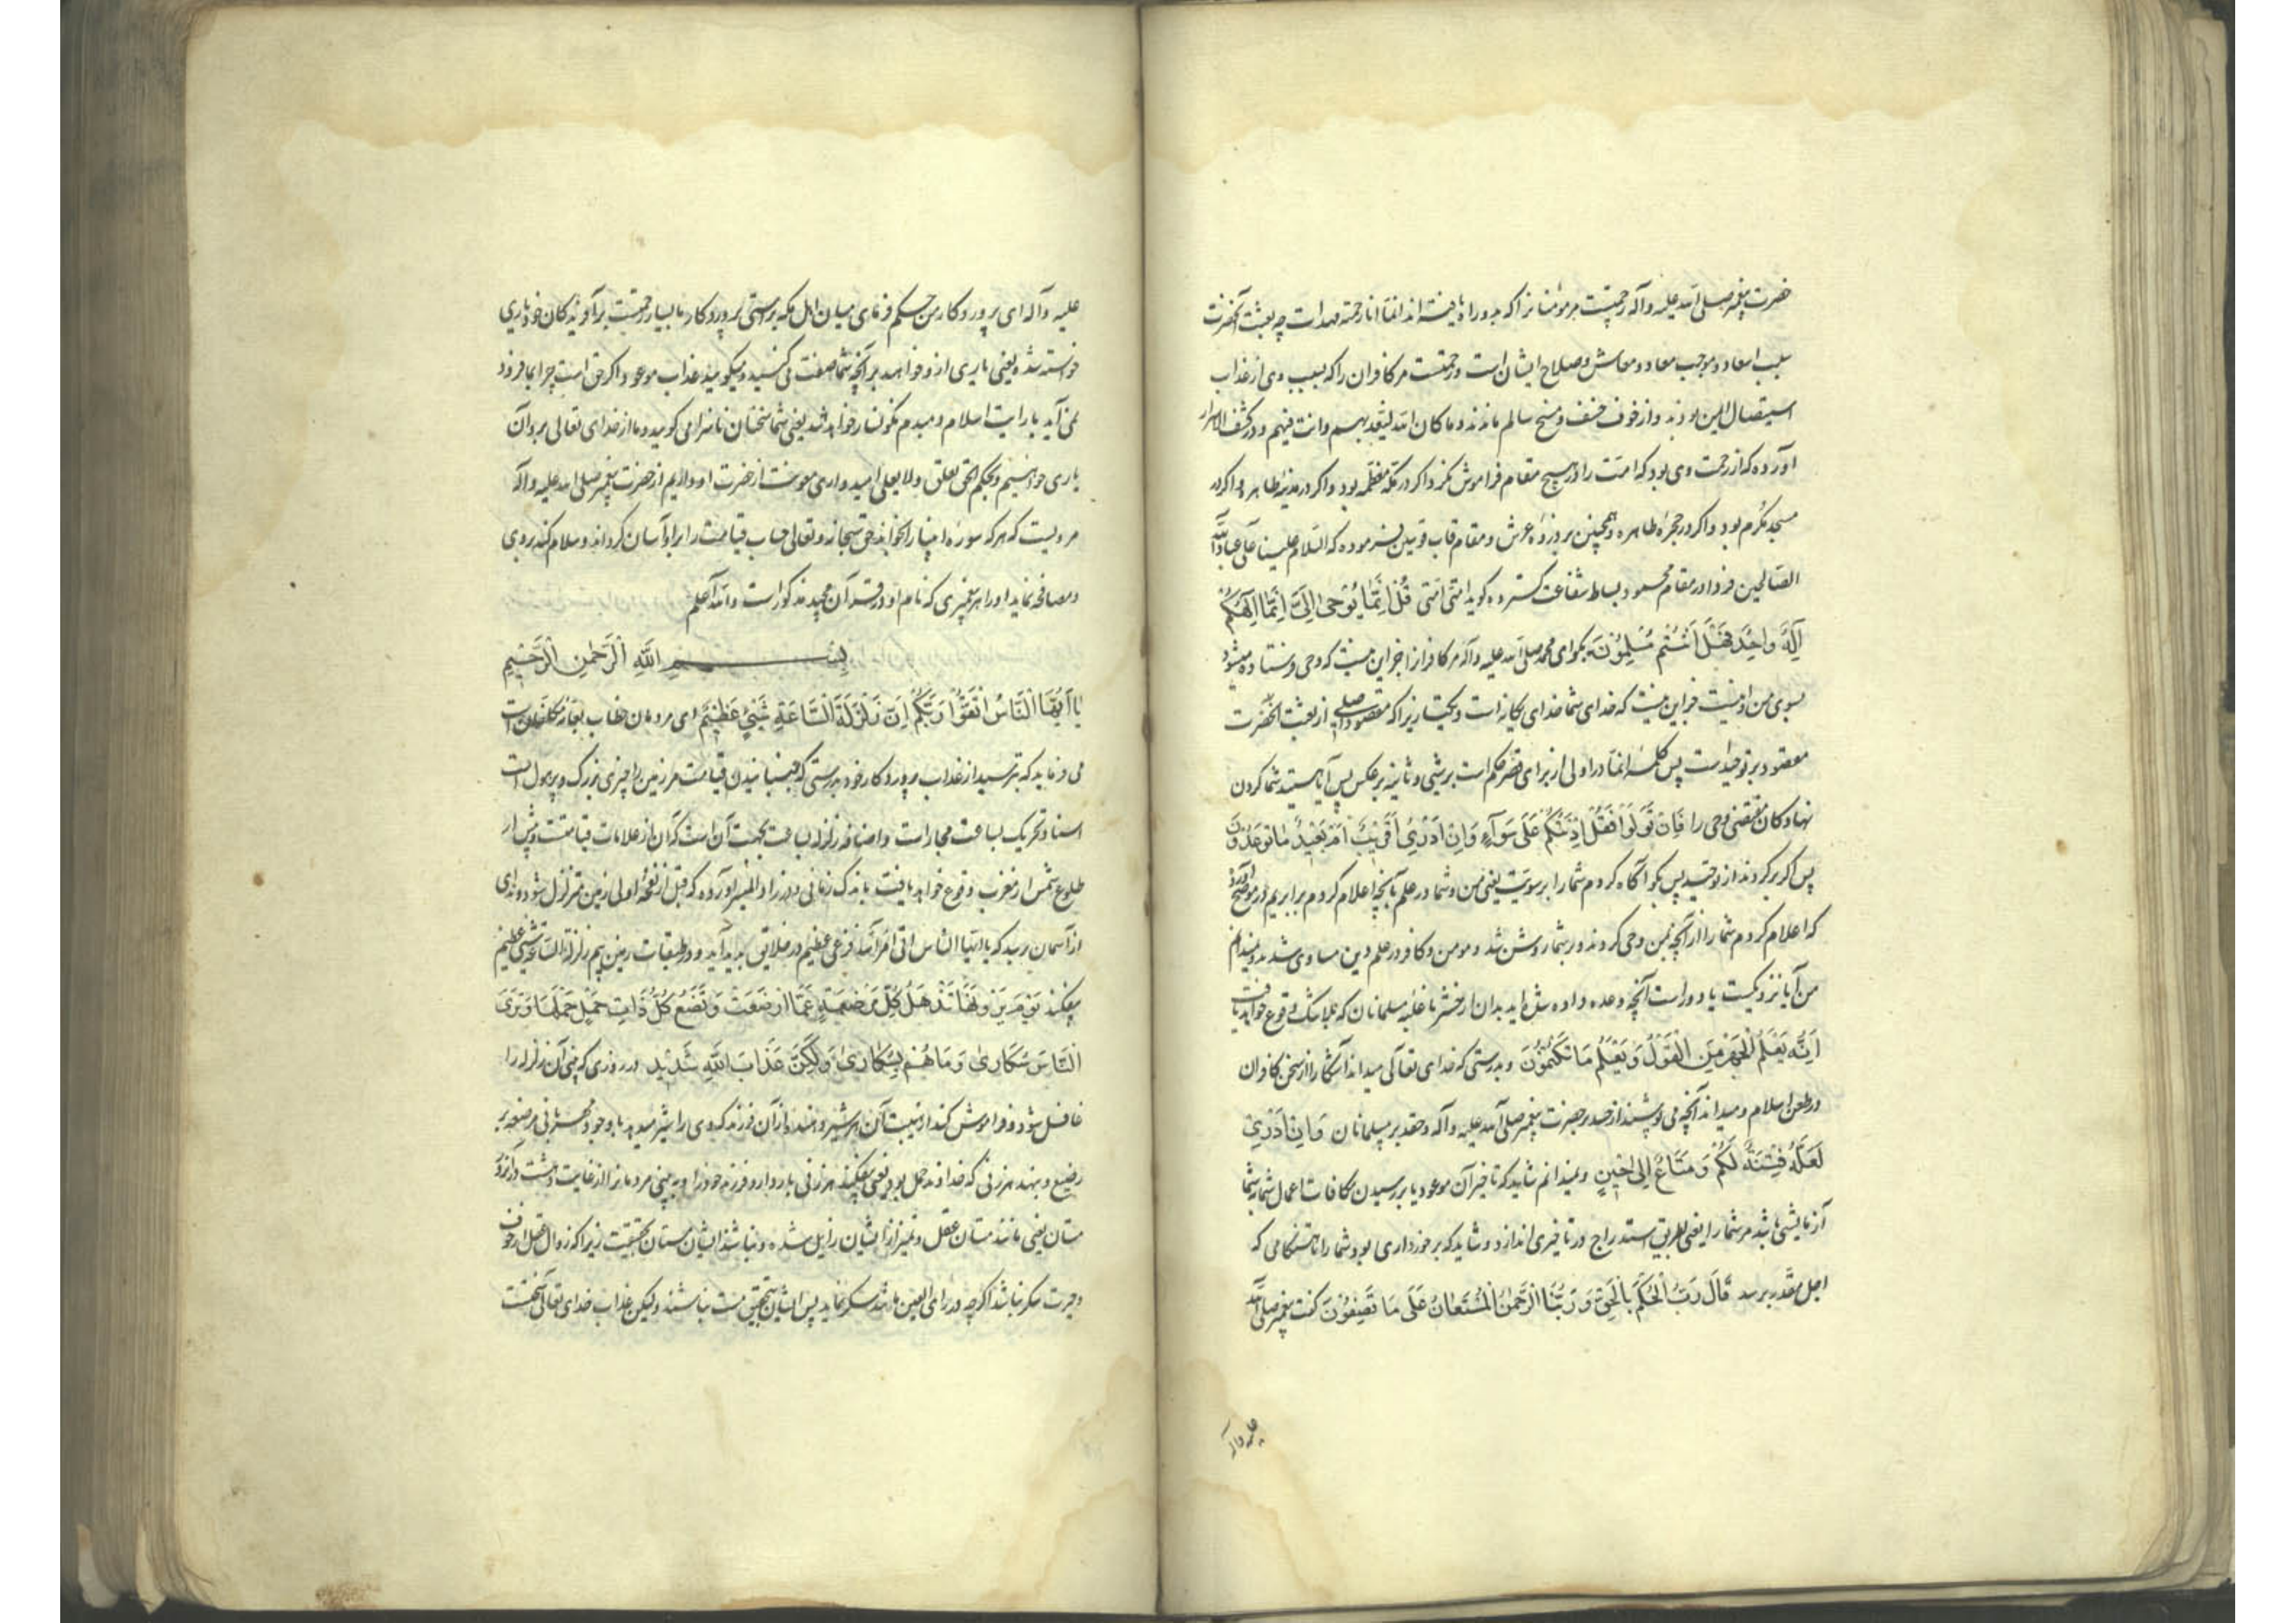 حضرت پیغمبر صلی الله علیه وآله رحمتست مر مومنانرا که بدو راه یافته اند انما انا رحمة مهداة چه بعثت آنحضرت
سبب اسعاد و موجب معاد و معاش و صلاح ایشان است و رحمتست مر کافران را که بسبب وی از عذاب
استیصال ایمن بودند و از خوف خسف و مسخ سالم ماندند وما کان الله لیعذبهم وانت فیهم و در کشف الاسرار
آورده که از رحمت وی بود که امت را در هیچ مقام فراموش نکرد اگر در مکه معظمه بود و اگر در مدینه طاهره و اگر در
مسجد مکرم بود و اگر در حجره طاهره و همچنین بر ذروه عرش و مقام قاب قوسین فرموده که السلام علینا و علی عباد الله
الصالحین فردا در مقام محمود بساط شفاعت گسترده گوید امتی امتی قُلْ اِنَّمَا یُوحٰی اِلَیَّ اَنَّمَا اِلٰهُکُمْ
اِلٰهٌ وَاحِدٌ فَهَلْ اَنْتُمْ مُسْلِمُونَ بگو ای محمد صلی الله علیه وآله مر کافرانرا جز این نیست که وحی فرستاده میشود
بسوی من و نیست جز این نیست که خدای شما خدای یگانه است و یکتا زیرا که مقصود اصلی از بعثت آنحضرت
مقصود بر توحید است پس کلمه انما در اولی از برای قصر حکم است بر شیء و ثانیه بر عکس پس آیا هستید شما گردن
نهادگان مقتضی وحی را فَاِنْ تَوَلَّوْا فَقُلْ اٰذَنْتُکُمْ عَلٰی سَوَآءٍ وَاِنْ اَدْرِی اَقَرِیبٌ اَمْ بَعِیدٌ مَا تُوعَدُونَ
پس اگر برگردند از توحید پس بگو آگاه کردم شما را بر سویت یعنی من و شما در علم بآنچه اعلام کردم برابریم و در موضح آورده
که اعلام کردم شما را از آنچه بمن وحی کردند و بر شما روشن شد و مومن و کافر در علم دین مساوی شدند و نمیدانم
من آیا نزدیکست یا دور است آنچه وعده داده شده اید بدان از حشر یا غلبه مسلمانان که بلا شک وقوع خواهد یافت
اِنَّهُ یَعْلَمُ الْجَهْرَ مِنَ الْقَوْلِ وَیَعْلَمُ مَا تَکْتُمُونَ و بدرستی که خدای تعالی میداند آشکارا از سخن کافران
در طعن اسلام و میداند آنچه می پوشند از حسد بر حضرت پیغمبر صلی الله علیه وآله و حقد بر مسلمانان وَاِنْ اَدْرِی
لَعَلَّهُ فِتْنَةٌ لَکُمْ وَمَتَاعٌ اِلٰی حِینٍ و نمیدانم شاید که تاخیر آن موعود یا بر رسیدن مکافات اعمال شما بشما
آزمایشی باشد مر شما را یعنی بطریق استدراج در تاخیری اندازد و شاید که برخورداری بود شما را تا هنگامی که
اجل مقدر برسد قَالَ رَبِّ احْکُمْ بِالْحَقِّ وَرَبُّنَا الرَّحْمٰنُ الْمُسْتَعَانُ عَلٰی مَا تَصِفُونَ گفت پیغمبر صلی الله
علیه وآله
علیه وآله ای پروردگار من حکم فرمای میان اهل مکه براستی و پروردگار ما بسیار رحمتست بر آفریدگان خود یاری
خواسته شده یعنی یاری از و خواهند بر آنچه شما صفت می کنید و میگویید عذاب موعود اگر حق است چرا بما فرود
نمی آید یا رایت اسلام دمبدم نگونسار خواهد شد یعنی شما سخنان ناسزا می گویید و ما از خدای تعالی بر دان
یاری خواهیم و بحکم الحق یعلو ولا یعلی امیدواری معونت از حضرت او داریم از حضرت پیغمبر صلی الله علیه وآله
مرویست که هر که سوره انبیا را بخواند حق سبحانه وتعالی حساب قیامت را بر او آسان گرداند و سلام کند بروی
و مصافحه نماید او را هر پیغمبری که نام او در قرآن مجید مذکور است والله اعلم
بسم الله الرحمن الرحیم
یَا اَیُّهَا النَّاسُ اتَّقُوا رَبَّکُمْ اِنَّ زَلْزَلَةَ السَّاعَةِ شَیْءٌ عَظِیمٌ ای مردمان خطاب بعامه مکلفانست
می فرماید که بترسید از عذاب پروردگار خود بدرستی که جنبانیدن قیامت مر زمین را چیزی بزرگ و پر هول است
اسناد تحریک بساعت مجاز است و اضافه زلزله بساعت بجهت آن است که آن از علامات قیامتست و پیش از
طلوع شمس از مغرب وقوع خواهد یافت باندک زمانی و در زاد المسیر آورده که قبل از نفخه اولی زمین متزلزل شود و ندای
از آسمان رسد که یا ایها الناس اتی امر الله فزعی عظیم در خلایق پدید آید و در طبقات زمین بیم زلزلة الساعة شیء عظیم
بیفکند یَوْمَ تَرَوْنَهَا تَذْهَلُ کُلُّ مُرْضِعَةٍ عَمَّا اَرْضَعَتْ وَتَضَعُ کُلُّ ذَاتِ حَمْلٍ حَمْلَهَا وَتَرَی
النَّاسَ سُکَارٰی وَمَا هُمْ بِسُکَارٰی وَلٰکِنَّ عَذَابَ اللّٰهِ شَدِیدٌ در روزی که بینی آن زلزله را
غافل شود و فراموش کند از هیبت آن هر شیر دهنده از آن فرزند که وی را شیر میدهد با وجود مهربانی مرضعه بر
رضیع و بنهد هر زنی که خداوند حمل بود یعنی بیفکند هر زنی باردار و فرزند خود را و بینی مردمان را از غایت دهشت در آنروز
مستان یعنی مانند مستان عقل و تمیز از ایشان زایل شده و نباشند ایشان مستان بحقیقت زیرا که زوال عقل از خوف
و حیرت سکر نباشد اگر چه در رای العین مانند سکر نماید پس ایشان بتحقیق مست نباشند ولیکن عذاب خدای تعالی سختست